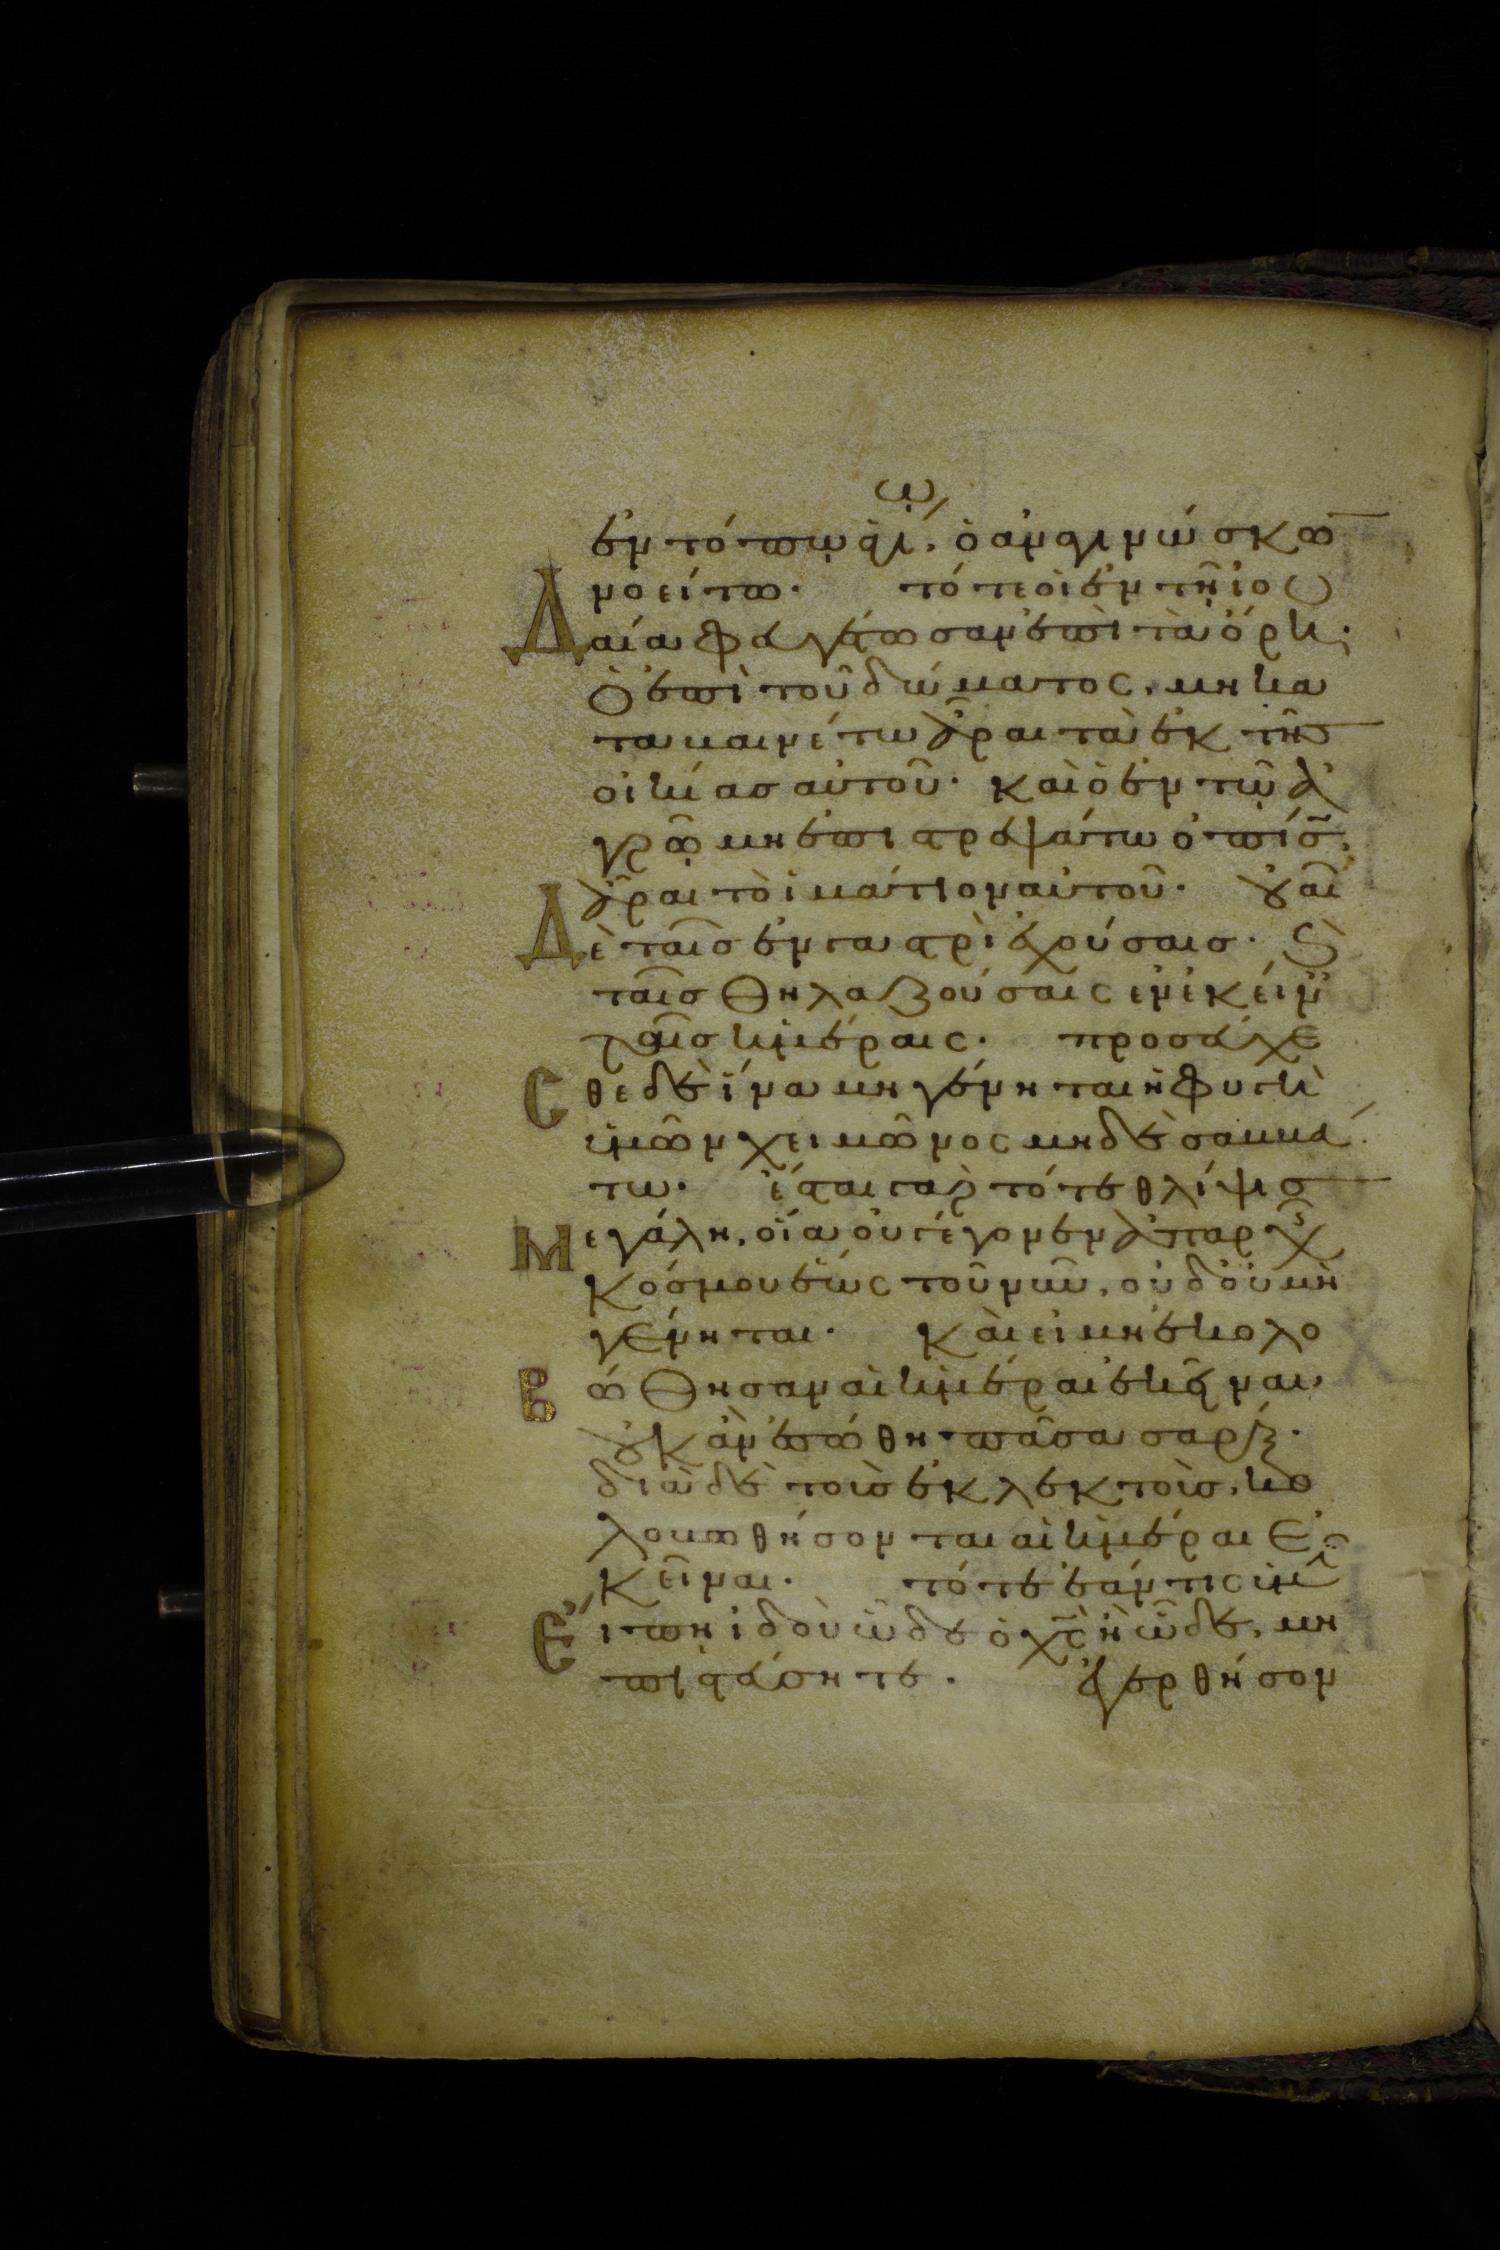 ἐν τόπῳ ἁγίῳ, ὁ ἀναγινώσκω̅
νοείτω. τότε οἱ ἐν τῇ ἰου
Δαία φευγέτωσαν ἐπὶ τὰ ὄρη.
Ὁ ἐπὶ τοῦ δώματος, μη κα
ταβαινέτω ἆραι τὰ ἐκ τῆς
οἰκίας αὐτοῦ. καὶ ὁ ἐν τῷ ἀ
γρῷ μη ἐπιστρεψάτω ὀπίσω
ἆραι τὸ ἱμάτιον αὐτοῦ. οὐαὶ
Δὲ ταῖς ἐν γαστρὶ ἐχούσαις. καὶ
ταῖς θηλαζούσαις ἐν ἐκείναις
ταῖς ἡμέραις. προσεύχε
Σθε δὲ ἵνα μη γένηται ἡ φυγὴ
ὑμῶν χειμῶνος μηδὲ σαββά
τω. ἔσται γὰρ τότε θλίψις
Μεγάλη, οἵα οὐ γέγονεν ἀπαρχῆς
κόσμου ἕως τοῦ νῦν, οὐδ' οὐ μὴ
γένηται. καὶ εἰ μη ἐκολο
Βώθησαν αἱ ἡμέραι ἐκεῖναι,
οὐκ ἂν ἐσώθη πᾶσα σαρξ.
διὰ δὲ τοὺς ἐκλεκτοὺς, κο
λοβωθήσονται αἱ ἡμέραι ἐ
κεῖναι. τότε ἐάν τις ὑμῖν
Εἴπη ἰδοὺ ὧδε ὁ χ̅ς̅ ἢ ὧδε, μη
πιστεύσητε. ἐγερθήσον